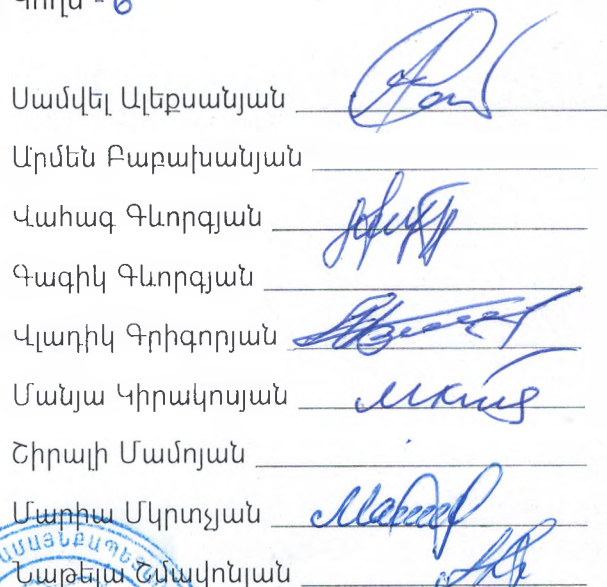 Կողմ - 6
Սամվել Ալեքսանյան
Արմեն Բաբախանյան
Վահագ Գևորգյան
Գագիկ Գևորգյան
Վլադիկ Գրիգորյան
Մանյա Կիրակոսյան
Շիրալի Մամոյան
Մարիա Մկրտչյան
Նաթելա Շմավոնյան